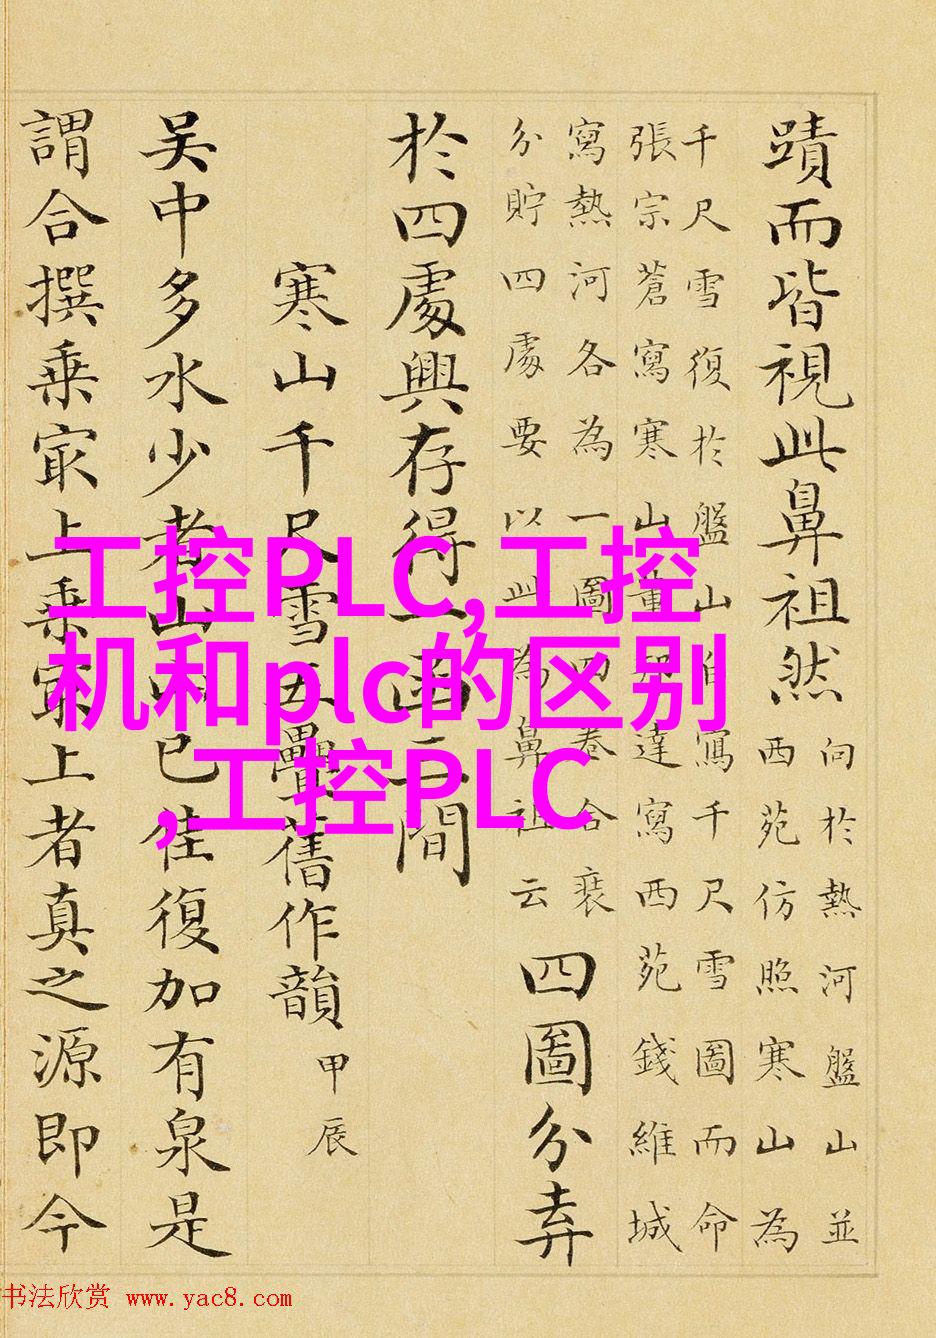 蹟而皆視此鼻祖然
向於熱河盤山並
西苑仿照寒山為
千尺雪復於盤山自寫千尺雪圖而命
張宗蒼寫寒山董邦達寫西苑錢維城
寫熱河各為一圖四卷合袠
分貯四處要以此為鼻祖云
四圖分弆
於四處興存得一函間
寒山千尺雪五疊舊作韻 甲辰
吳中多水少者山山已佳復加有泉是
謂合撰乘冣上乘冣上者真之源即今
工控PLC,工控
机和plc的区别
,工控PLC
书法欣赏 www.yac8.com